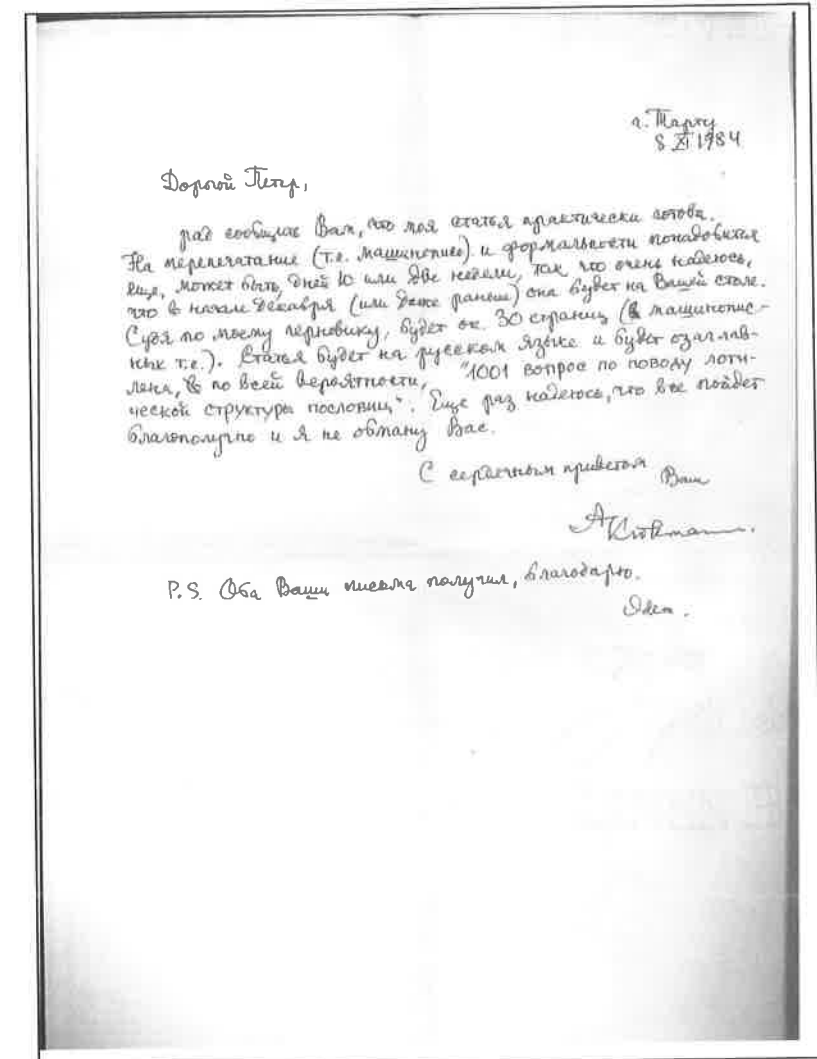 г. Тарту
8 XI 1984
Дорогой Петр,
рад сообщить Вам, что моя статья практически готова.
На перепечатание (т.е. машинопись) и формальности понадобится
еще, может быть, дней 10 или две недели, так что очень надеюсь,
что в начале декабря (или даже раньше) она будет на Вашей столе.
Судя по моему черновику, будет ок. 30 страниц (в машинопис-
ных т.е.). Статья будет на русском языке и будет озаглав-
лена, по всей вероятности, "1001 вопрос по поводу логи-
ческой структуры пословиц". Еще раз надеюсь, что все пойдет
благополучно и я не обману Вас.
С сердечным приветом
Ваш
А Крикманн.
P.S. Оба Ваши письма получил, благодарю.
Idem.